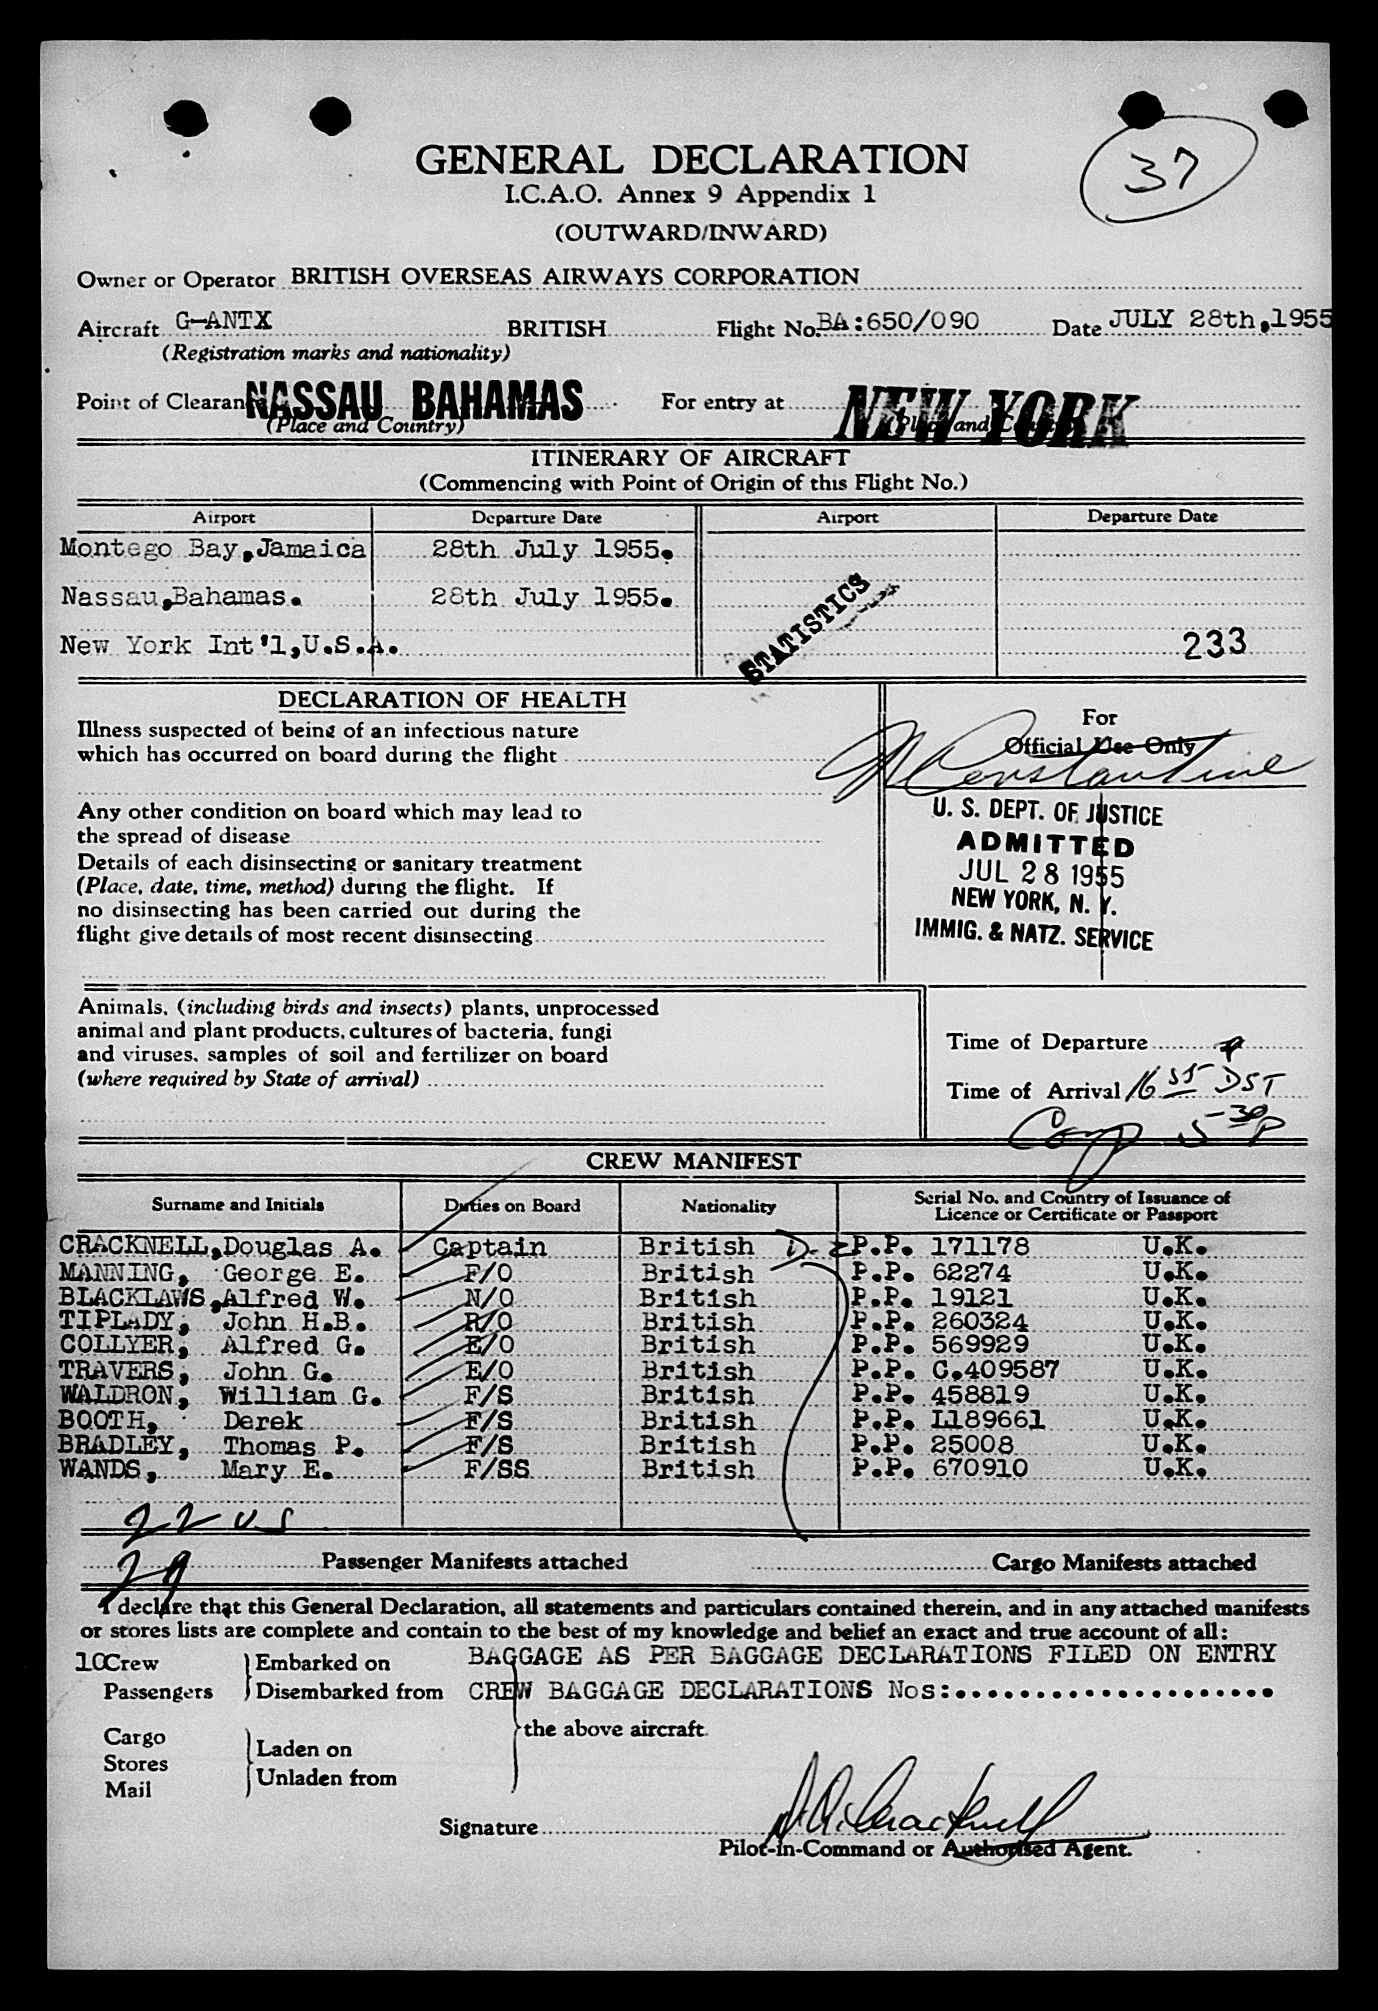 37
GENERAL DECLARATION
I.C.A.O. Annex 9 Appendix 1
(OUTWARD/INWARD)
Owner or Operator BRITISH OVERSEAS AIRWAYS CORPORATION
Aircraft G-ANTX BRITISH Flight No. BA:650/090 Date JULY 28th,1955
(Registration marks and nationality)
Point of Clearance NASSAU BAHAMAS For entry at NEW YORK
(Place and Country) (Place and Country)
ITINERARY OF AIRCRAFT
(Commencing with Point of Origin of this Flight No.)
Airport Departure Date Airport Departure Date
Montego Bay,Jamaica 28th July 1955.
Nassau,Bahamas. 28th July 1955.
STATISTICS
New York Int'l,U.S.A. 233
DECLARATION OF HEALTH
Illness suspected of being of an infectious nature
which has occurred on board during the flight
Any other condition on board which may lead to
the spread of disease
Details of each disinsecting or sanitary treatment
(Place, date, time, method) during the flight. If
no disinsecting has been carried out during the
flight give details of most recent disinsecting
For
Official Use Only
Constantine
U. S. DEPT. OF JUSTICE
ADMITTED
JUL 28 1955
NEW YORK, N. Y.
IMMIG. & NATZ. SERVICE
Animals, (including birds and insects) plants, unprocessed
animal and plant products, cultures of bacteria, fungi
and viruses, samples of soil and fertilizer on board
(where required by State of arrival)
Time of Departure
Time of Arrival 16 55 DST
Comp 5-30P
CREW MANIFEST
Surname and Initials Duties on Board Nationality Serial No. and Country of Issuance of
Licence or Certificate or Passport
CRACKNELL,Douglas A. Captain British D-2 P.P. 171178 U.K.
MANNING, George E. F/O British P.P. 62274 U.K.
BLACKLAWS,Alfred W. N/O British P.P. 19121 U.K.
TIPLADY, John H.B. R/O British P.P. 260324 U.K.
COLLYER, Alfred G. E/O British P.P. 569929 U.K.
TRAVERS, John G. E/O British P.P. C.409587 U.K.
WALDRON, William G. F/S British P.P. 458819 U.K.
BOOTH, Derek F/S British P.P. L189661 U.K.
BRADLEY, Thomas P. F/S British P.P. 25008 U.K.
WANDS, Mary E. F/SS British P.P. 670910 U.K.
22 US
29 Passenger Manifests attached Cargo Manifests attached
I declare that this General Declaration, all statements and particulars contained therein, and in any attached manifests
or stores lists are complete and contain to the best of my knowledge and belief an exact and true account of all:
10 Crew Embarked on BAGGAGE AS PER BAGGAGE DECLARATIONS FILED ON ENTRY
Passengers Disembarked from CREW BAGGAGE DECLARATIONS Nos:....................
the above aircraft.
Cargo
Stores Laden on
Mail Unladen from
Signature D.A. Cracknell
Pilot-in-Command or Authorised Agent.